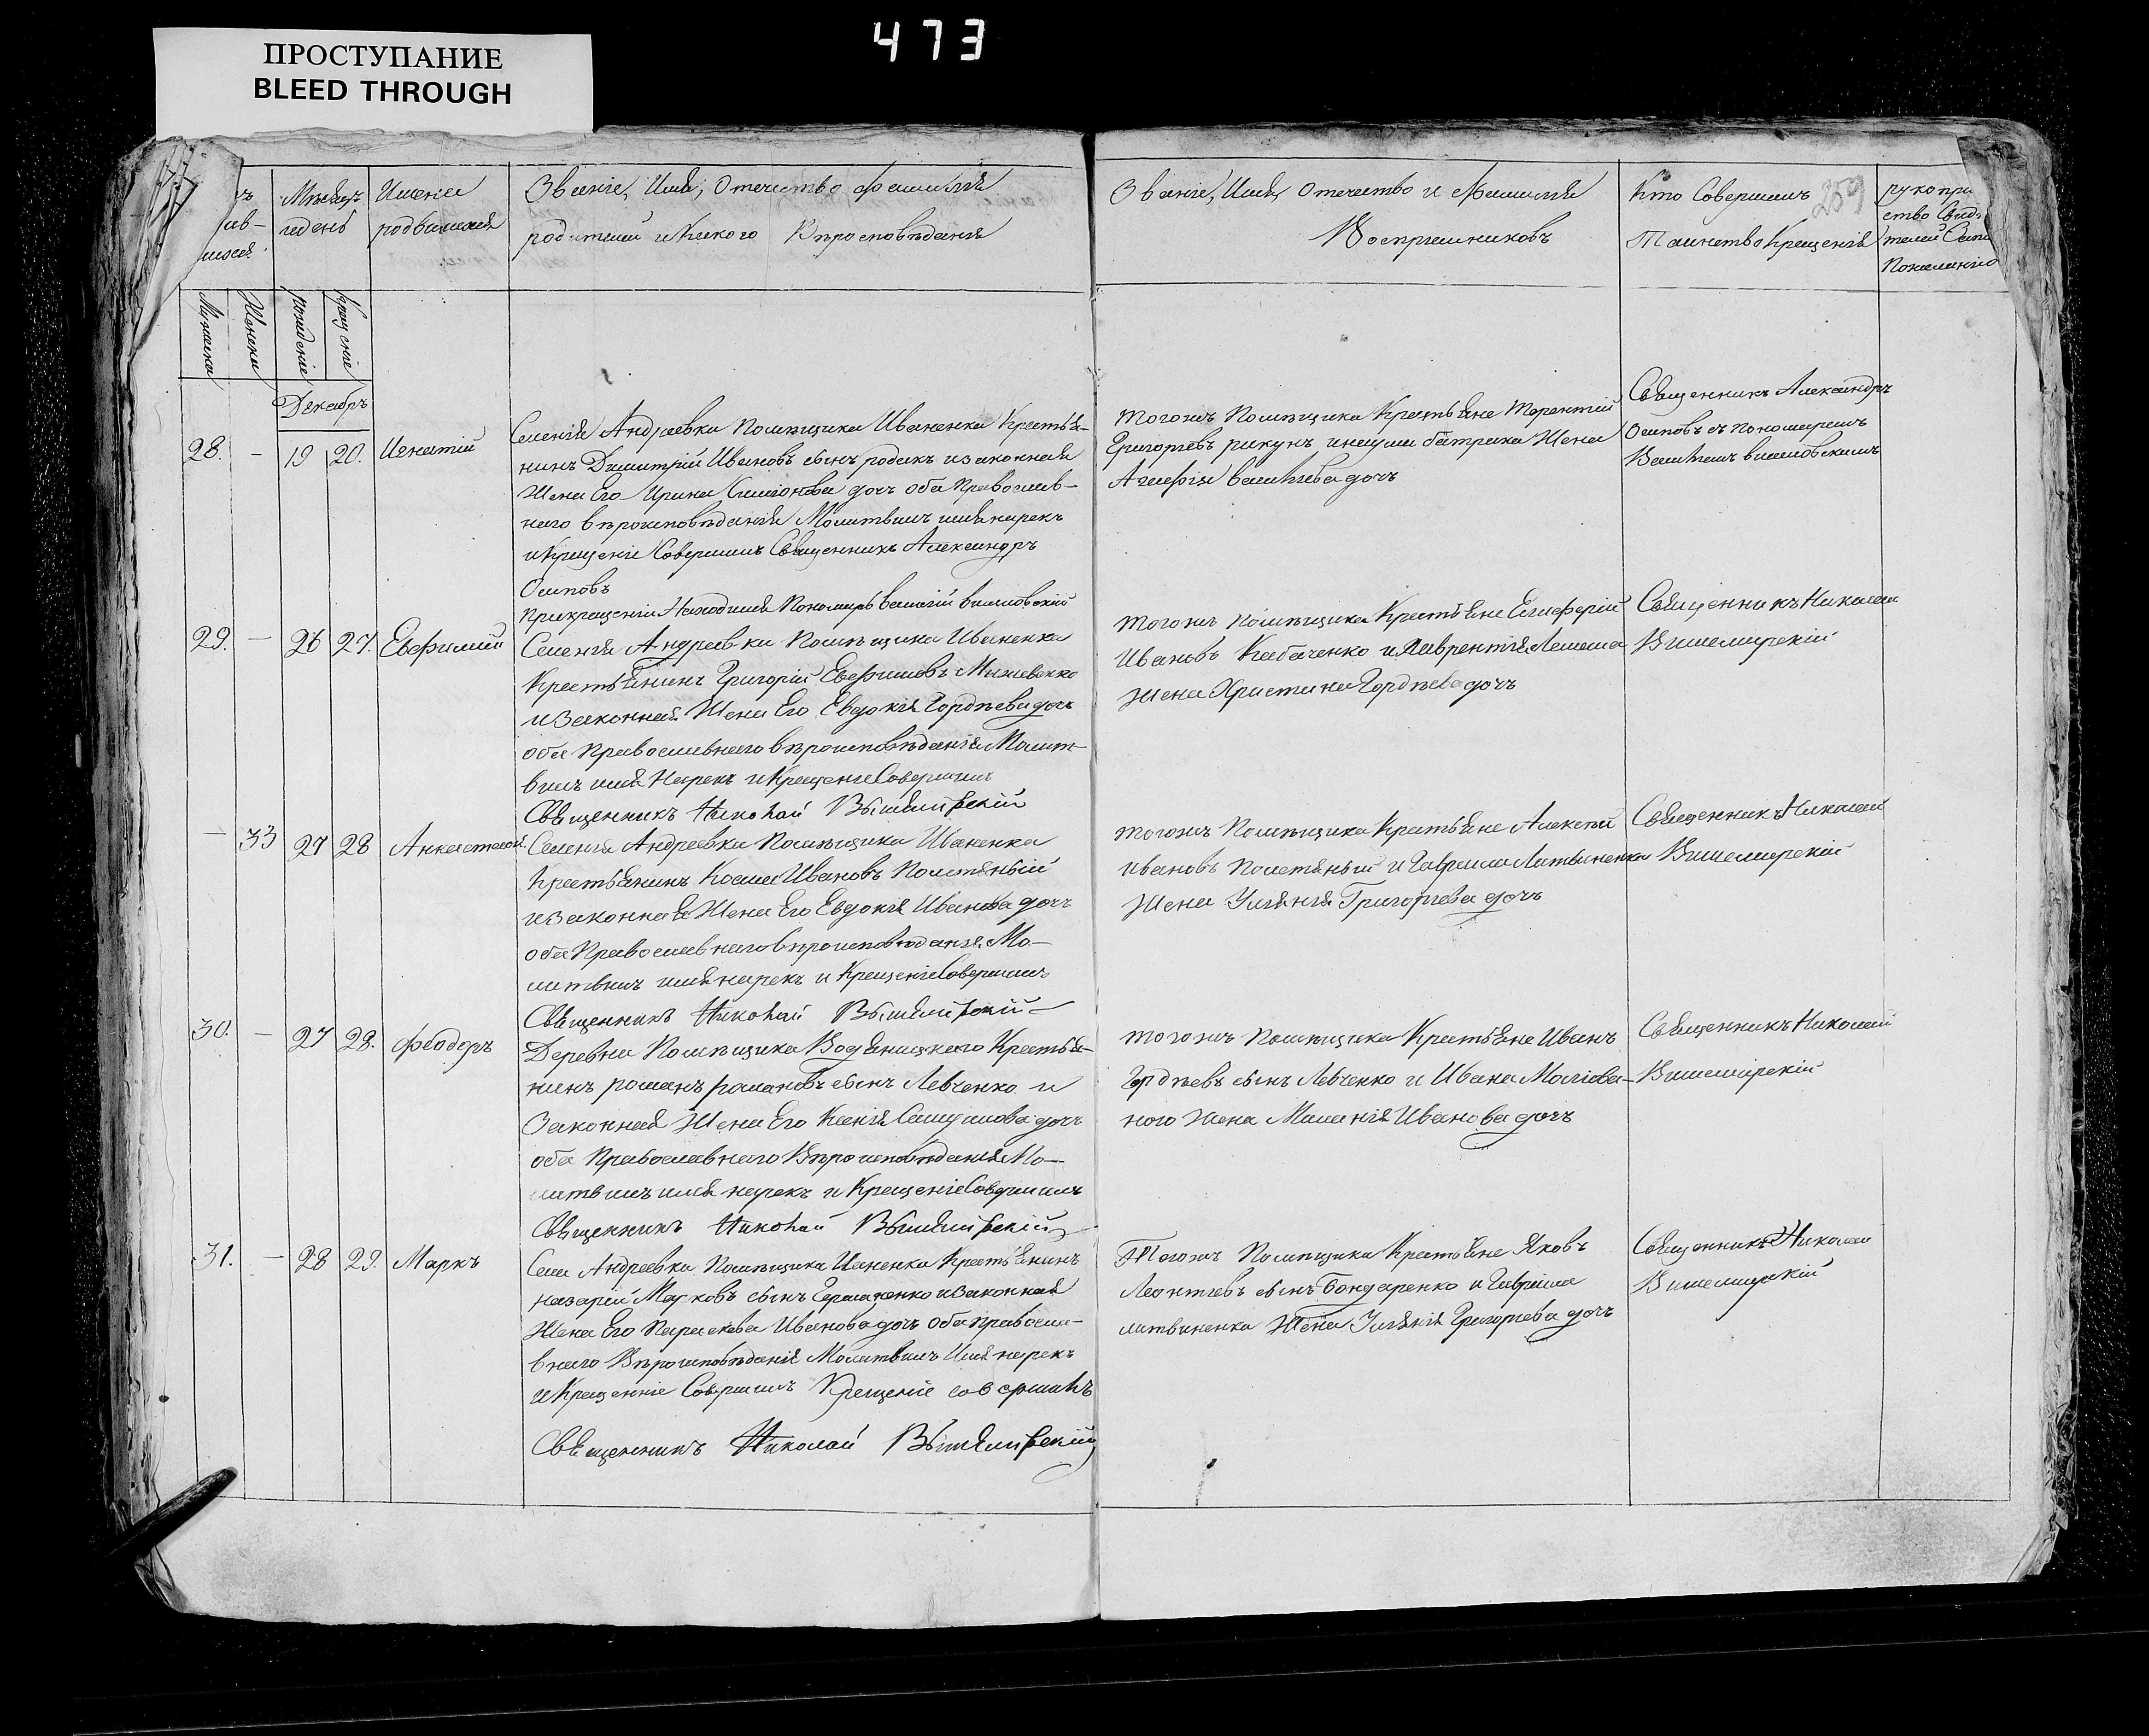 473
ПРОСТУПАНИЕ
BLEED THROUGH
Мѣсяцъ
и день
Имена
родвшихся
Званіе, Имя, Отечество и Фамилія
родителей и Какого Вѣроисповѣданія
Званіе, Имя, Отечество и Фамилія
Воспріемниковъ
Кто Совершилъ
Таинство Крещенія
259
рукопри
ство Свидѣ
телей
Пожеланію
Мужеска
Женска
рожденіе
Крещеніе
Декабрь
28. – 19 20. Игнатій
Селенія Андреевки Помѣщика Иваненка Крестья-
нинъ Димитрій Ивановъ сынъ родакъ и законная
Жена Его Ирина Симіонова дочь оба Православ-
наго вѣроисповѣданія Молитвилъ имя нарекъ
и Крещеніе Совершилъ Священникъ Александръ
Осиповъ
При крещеніи Находился Пономарь
тогожъ Помѣщика Крестьяне Терентій
Григоріевъ Жена
Агафія дочь
Священникъ Александръ
Осиповъ съ пономаремъ
29. – 26 27. Евфимій
Селенія Андреевки Помѣщика Иваненка
Крестьянинъ Григорій Евфимовъ
и законная Жена Его Евдокія Гордѣева дочь
оба Православнаго вѣроисповѣданія Молит-
вилъ имя Нарекъ и Крещеніе Совершилъ
Священникъ Николай Вышемирскій
тогожъ помѣщика Крестьяне Елиферій
Ивановъ Кабаченко и Лаврентія
жена Христина Гордѣева дочь
Священникъ Николай
Вишемирскій
– 33 27 28 Анастасія
Селенія Андреевки Помѣщика Иваненка
Крестьянинъ Косма Ивановъ
и законная Жена Его Евдокія Иванова дочь
оба Православнаго вѣроисповѣданія Мо-
литвилъ имя нарекъ и Крещеніе Совершилъ
Священникъ Николай Вышемирскій
тогожъ Помѣщика Крестьяне Алексѣй
Ивановъ и Гавріила Литвиненка
Жена Уліянія Григоріева дочь
Священникъ Николай
Вишемирскій
30. – 27 28. Феодоръ
Деревни Помѣщика Водяницкаго Крестья-
нинъ романъ романовъ сынъ Левченко и
Законная Жена Его Ксенія дочь
оба Православнаго Вѣроисповѣданія Мо-
литвилъ имя нарекъ и Крещеніе Совершилъ
Священникъ Николай Вышемирскій
тогожъ Помѣщика Крестьяне Иванъ
Гордѣевъ сынъ Левченко и Ивана Маліова-
ного жена Маланія Иванова дочь
Священникъ Николай
Вишемирскій
31. – 28 29. Маркъ
Села Андреевки Помѣщика Иваненка Крестьянинъ
назарій Марковъ сынъ и законная
Жена Его Параскева Иванова дочь Оба Правосла-
внаго Вѣроисповѣданія Молитвилъ Имя нарекъ
и Крещенніе Совершилъ Крещеніе совершилъ
Священникъ Николай Вышемирскій
Тогожъ Помѣщика Крестьяне Яковъ
Леонтіевъ сынъ Бондаренко и Гавріила
литвиненка Жена Уліянія Григоріева дочь
Священникъ Николай
Вишемирскій